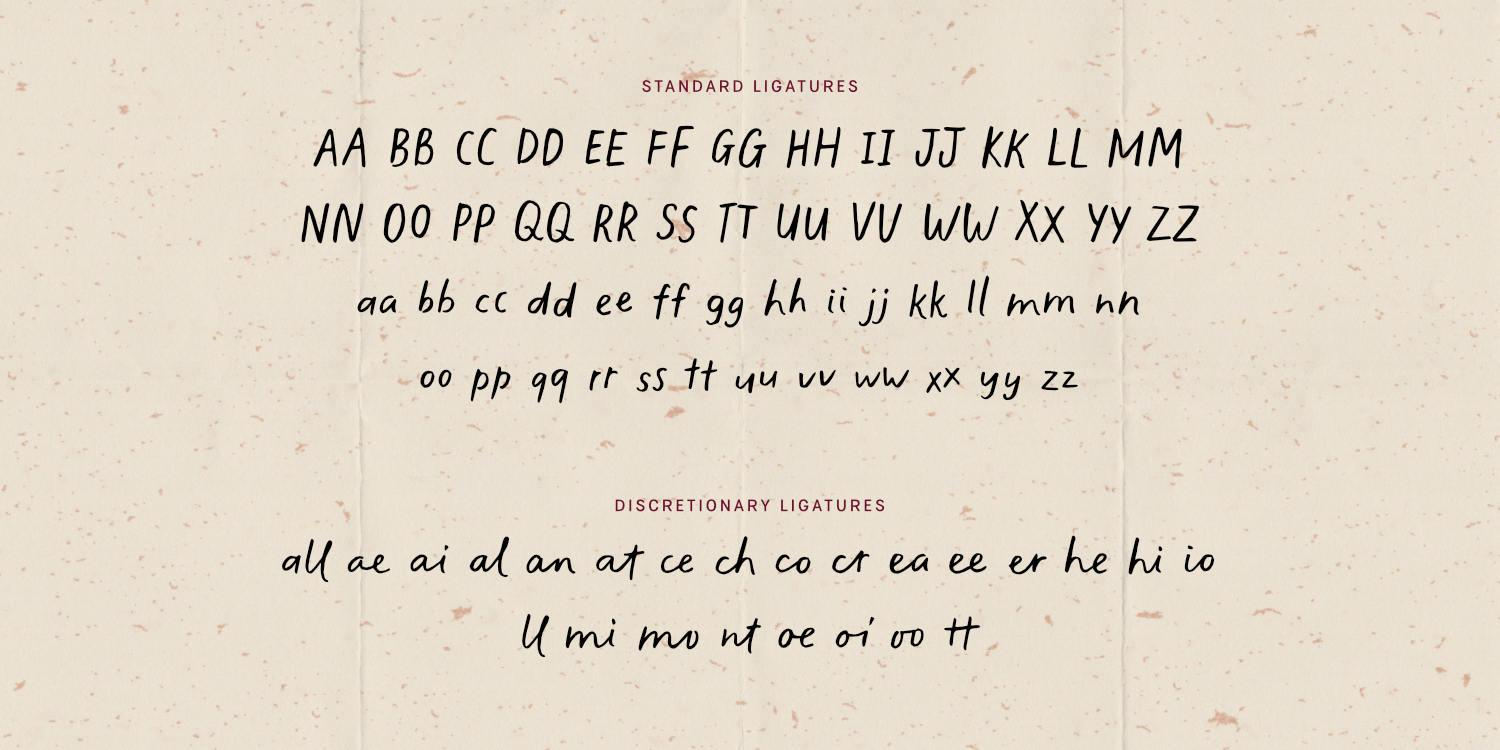 STANDARD LIGATURES
AA BB CC DD EE FF GG HH II JJ KK LL MM
NN OO PP QQ RR SS TT UU VV WW XX YY ZZ
aa bb cc dd ee ff gg hh ii jj kk ll mm nn
oo pp qq rr ss tt uu vv ww xx yy zz
DISCRETIONARY LIGATURES
all ae ai al an at ce ch co cr ea ee er he hi io
ll mi mo nt oe oi oo tt